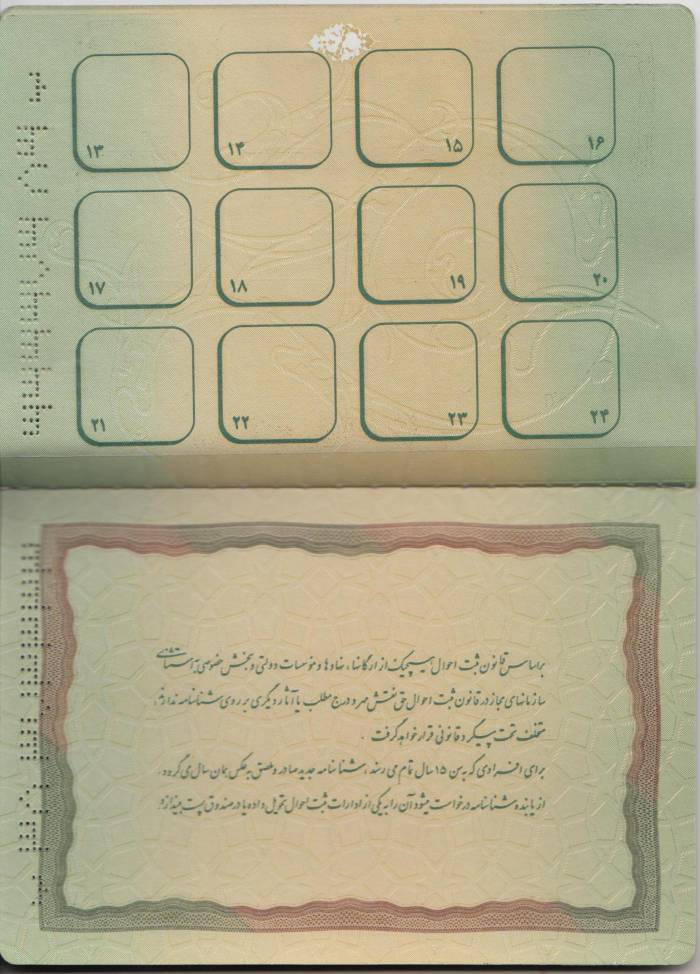 ۱۳ ۱۴ ۱۵ ۱۶
۱۷ ۱۸ ۱۹ ۲۰
۲۱ ۲۲ ۲۳ ۲۴
براساس قانون ثبت احوال هیچیک از ارگانها، نهادها و مؤسسات دولتی و بخش خصوصی به استثنای
سازمانهای مجاز در قانون ثبت احوال حق نقش مهر و درج مطلب یا آثار دیگری بر روی شناسنامه ندارند،
متخلف تحت پیگرد قانونی قرار خواهد گرفت .
برای افرادی که به سن ۱۵ سال تمام می رسند، شناسنامه جدید صادر و ملصق به عکس همان سال می گردد.
از یابنده شناسنامه درخواست میشود آن را به یکی از ادارات ثبت احوال تحویل داده یا در صندوق پست بیندازد.